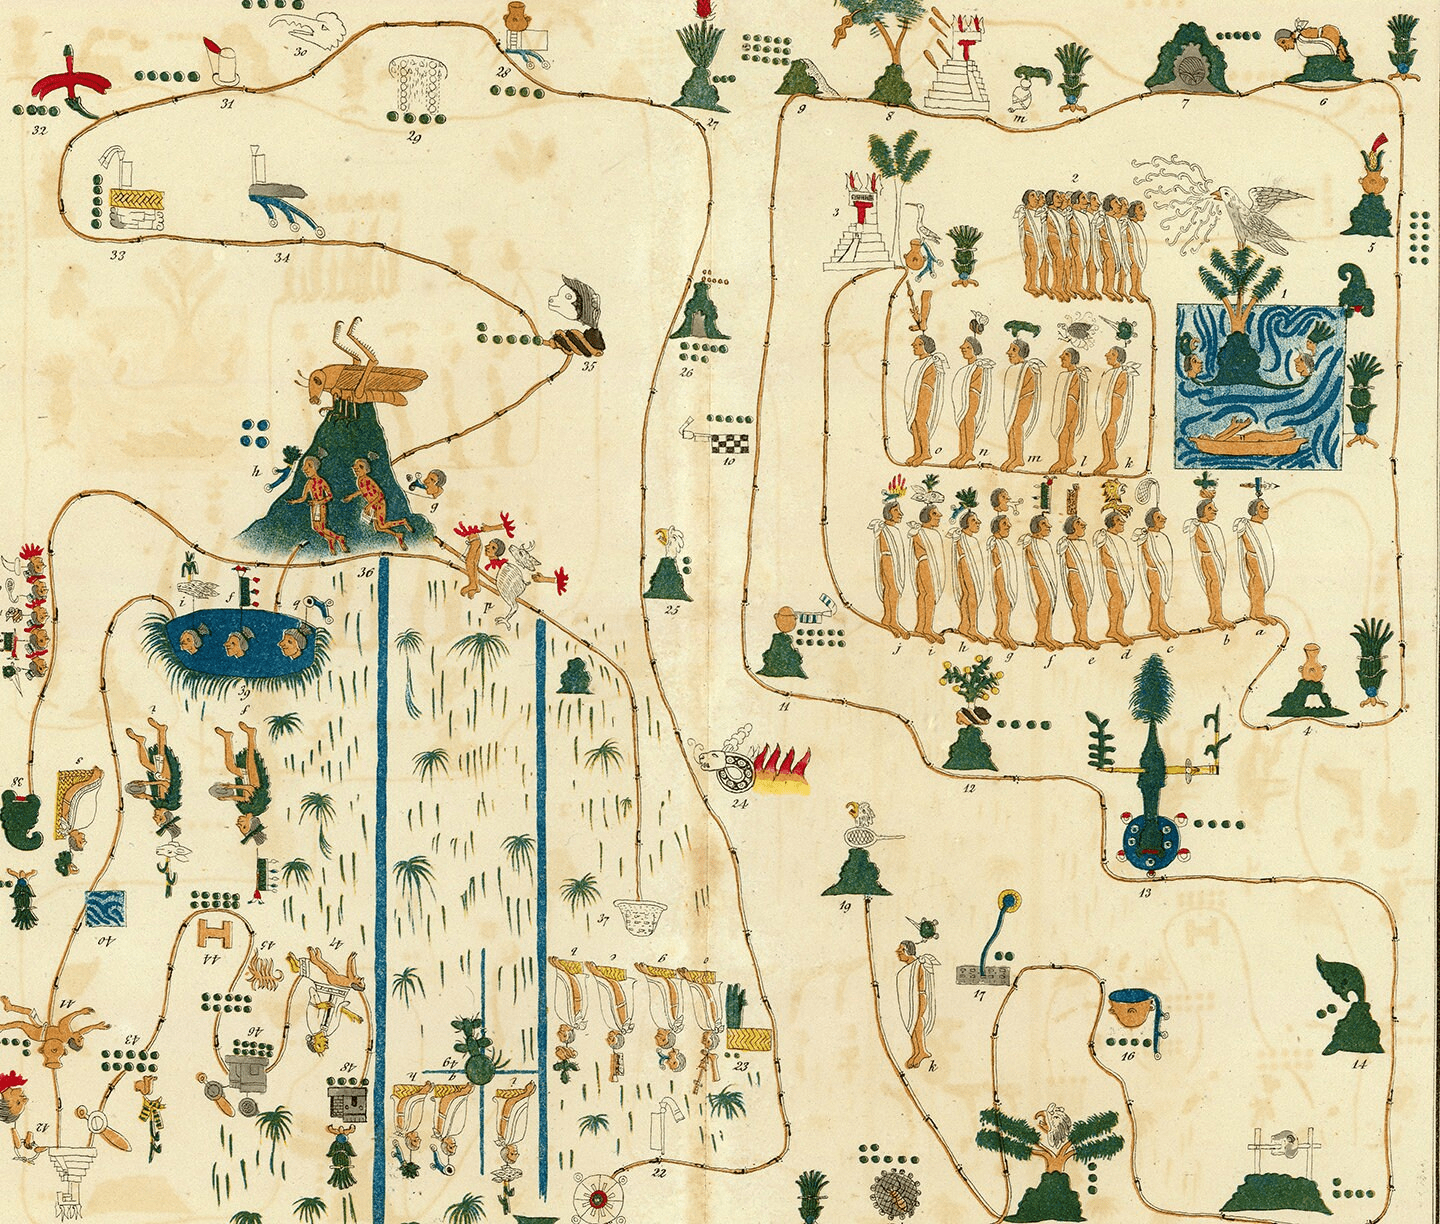 30
32
31
29
28
27
9
8
m
7
6
33
34
3
2
5
1
35
26
h
g
10
o
n
m
l
k
36
25
i
f
q
p
39
j
i
h
g
f
e
d
c
b
a
11
4
i
f
s
38
24
12
13
37
19
40
44
45
47
17
16
14
41
43
46
48
49
23
k
42
22